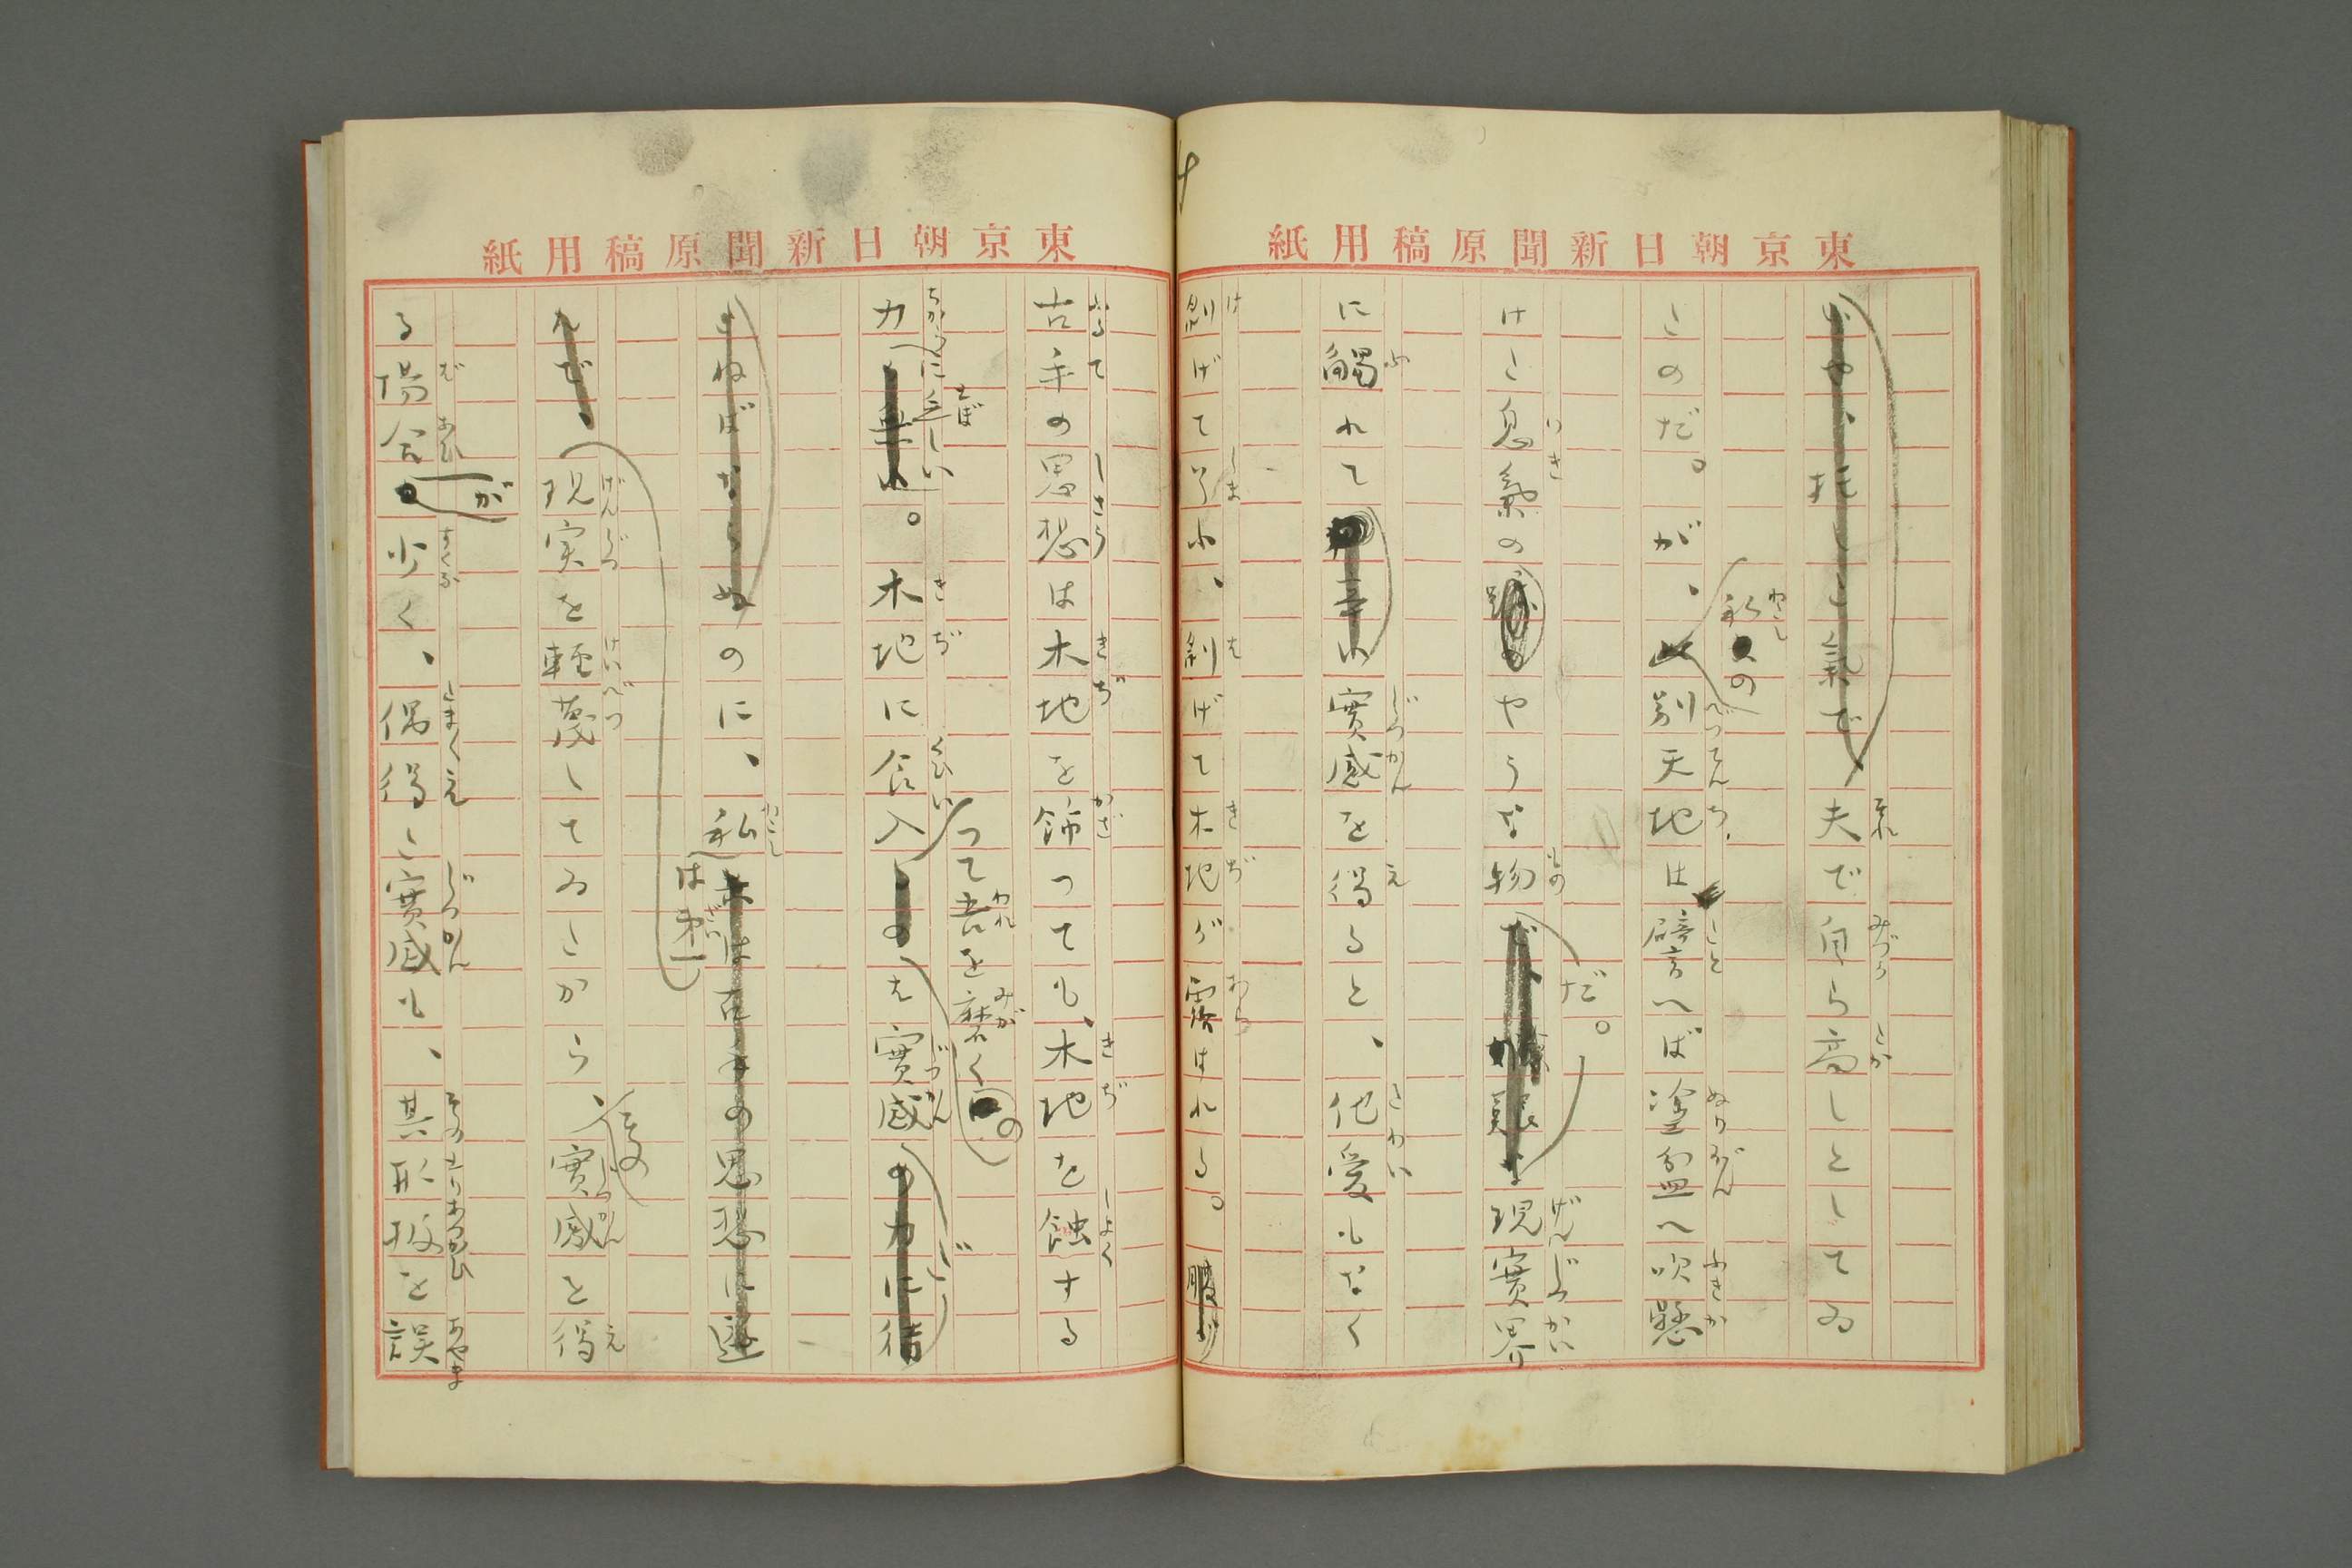 東京朝日新聞原稿用紙
夫で自ら高しとしてゐ
たのだ。が、私の別天地は譬へば塗盆へ吹懸
けた息氣のやうな物だ。現實界
に觸れて實感を得ると、他愛もなく
剝げて了ふ、剝げて木地が露はれる。
東京朝日新聞原稿用紙
古手の思想は木地を飾つても、木地を蝕する
力に乏しい。木地に食入つて吾を磨くのは實感だ
のに、私は第一
現実を軽蔑してゐたから、その實感を得
る場合が少く、偶得た實感も、其取扱を誤